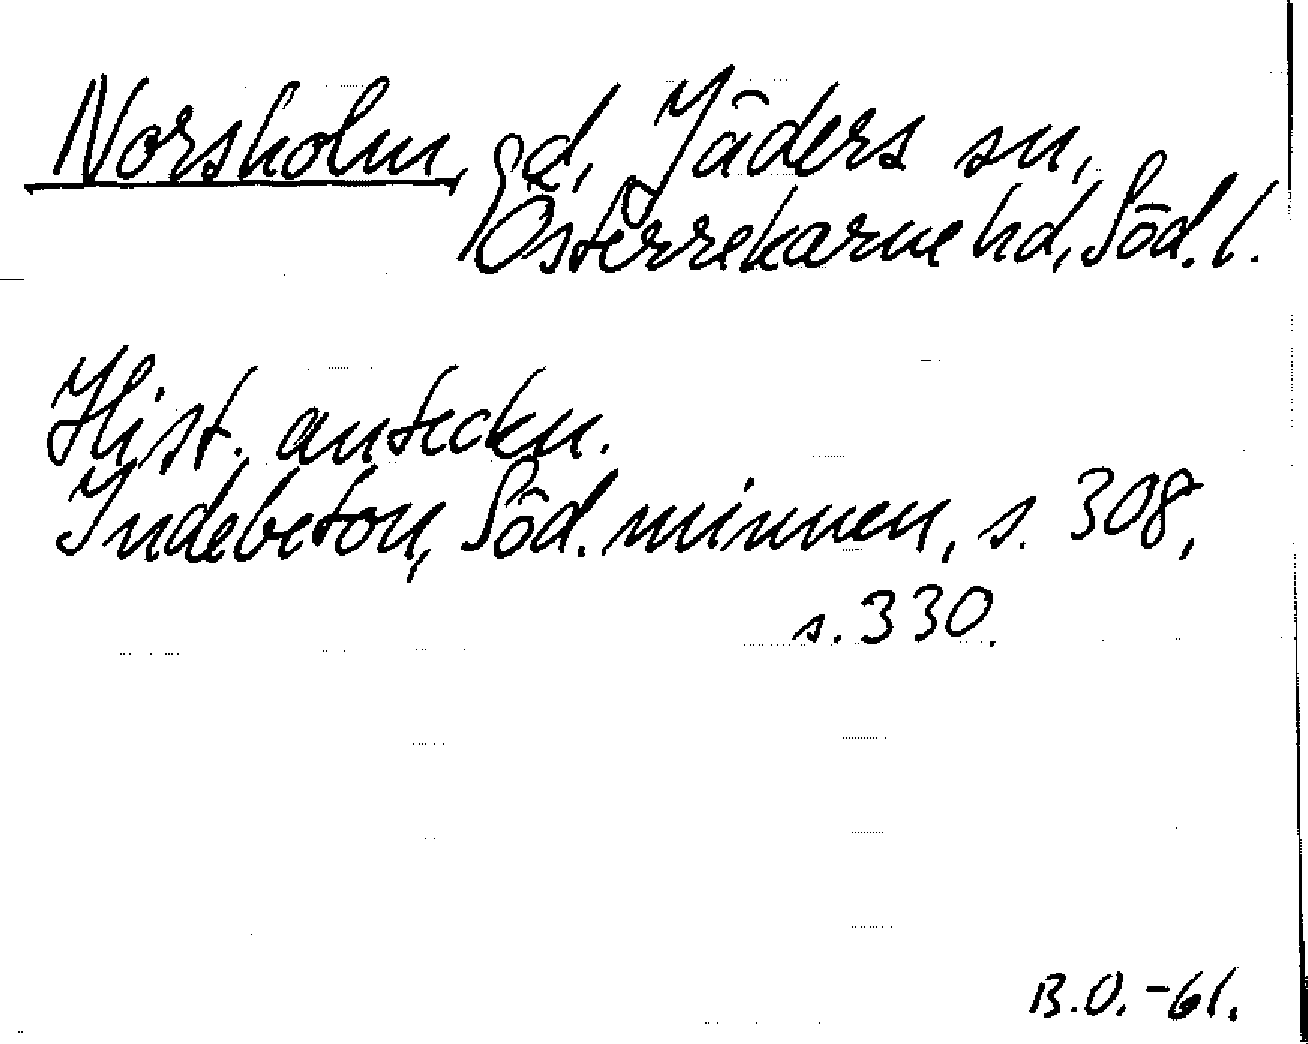 Norsholm, gd, Jäders sn,
Österrekarne hd, Söd. l.
Hist. anteckn.
Indebetou, Söd. minnen, s. 308,
s. 330.
B.O. -61.